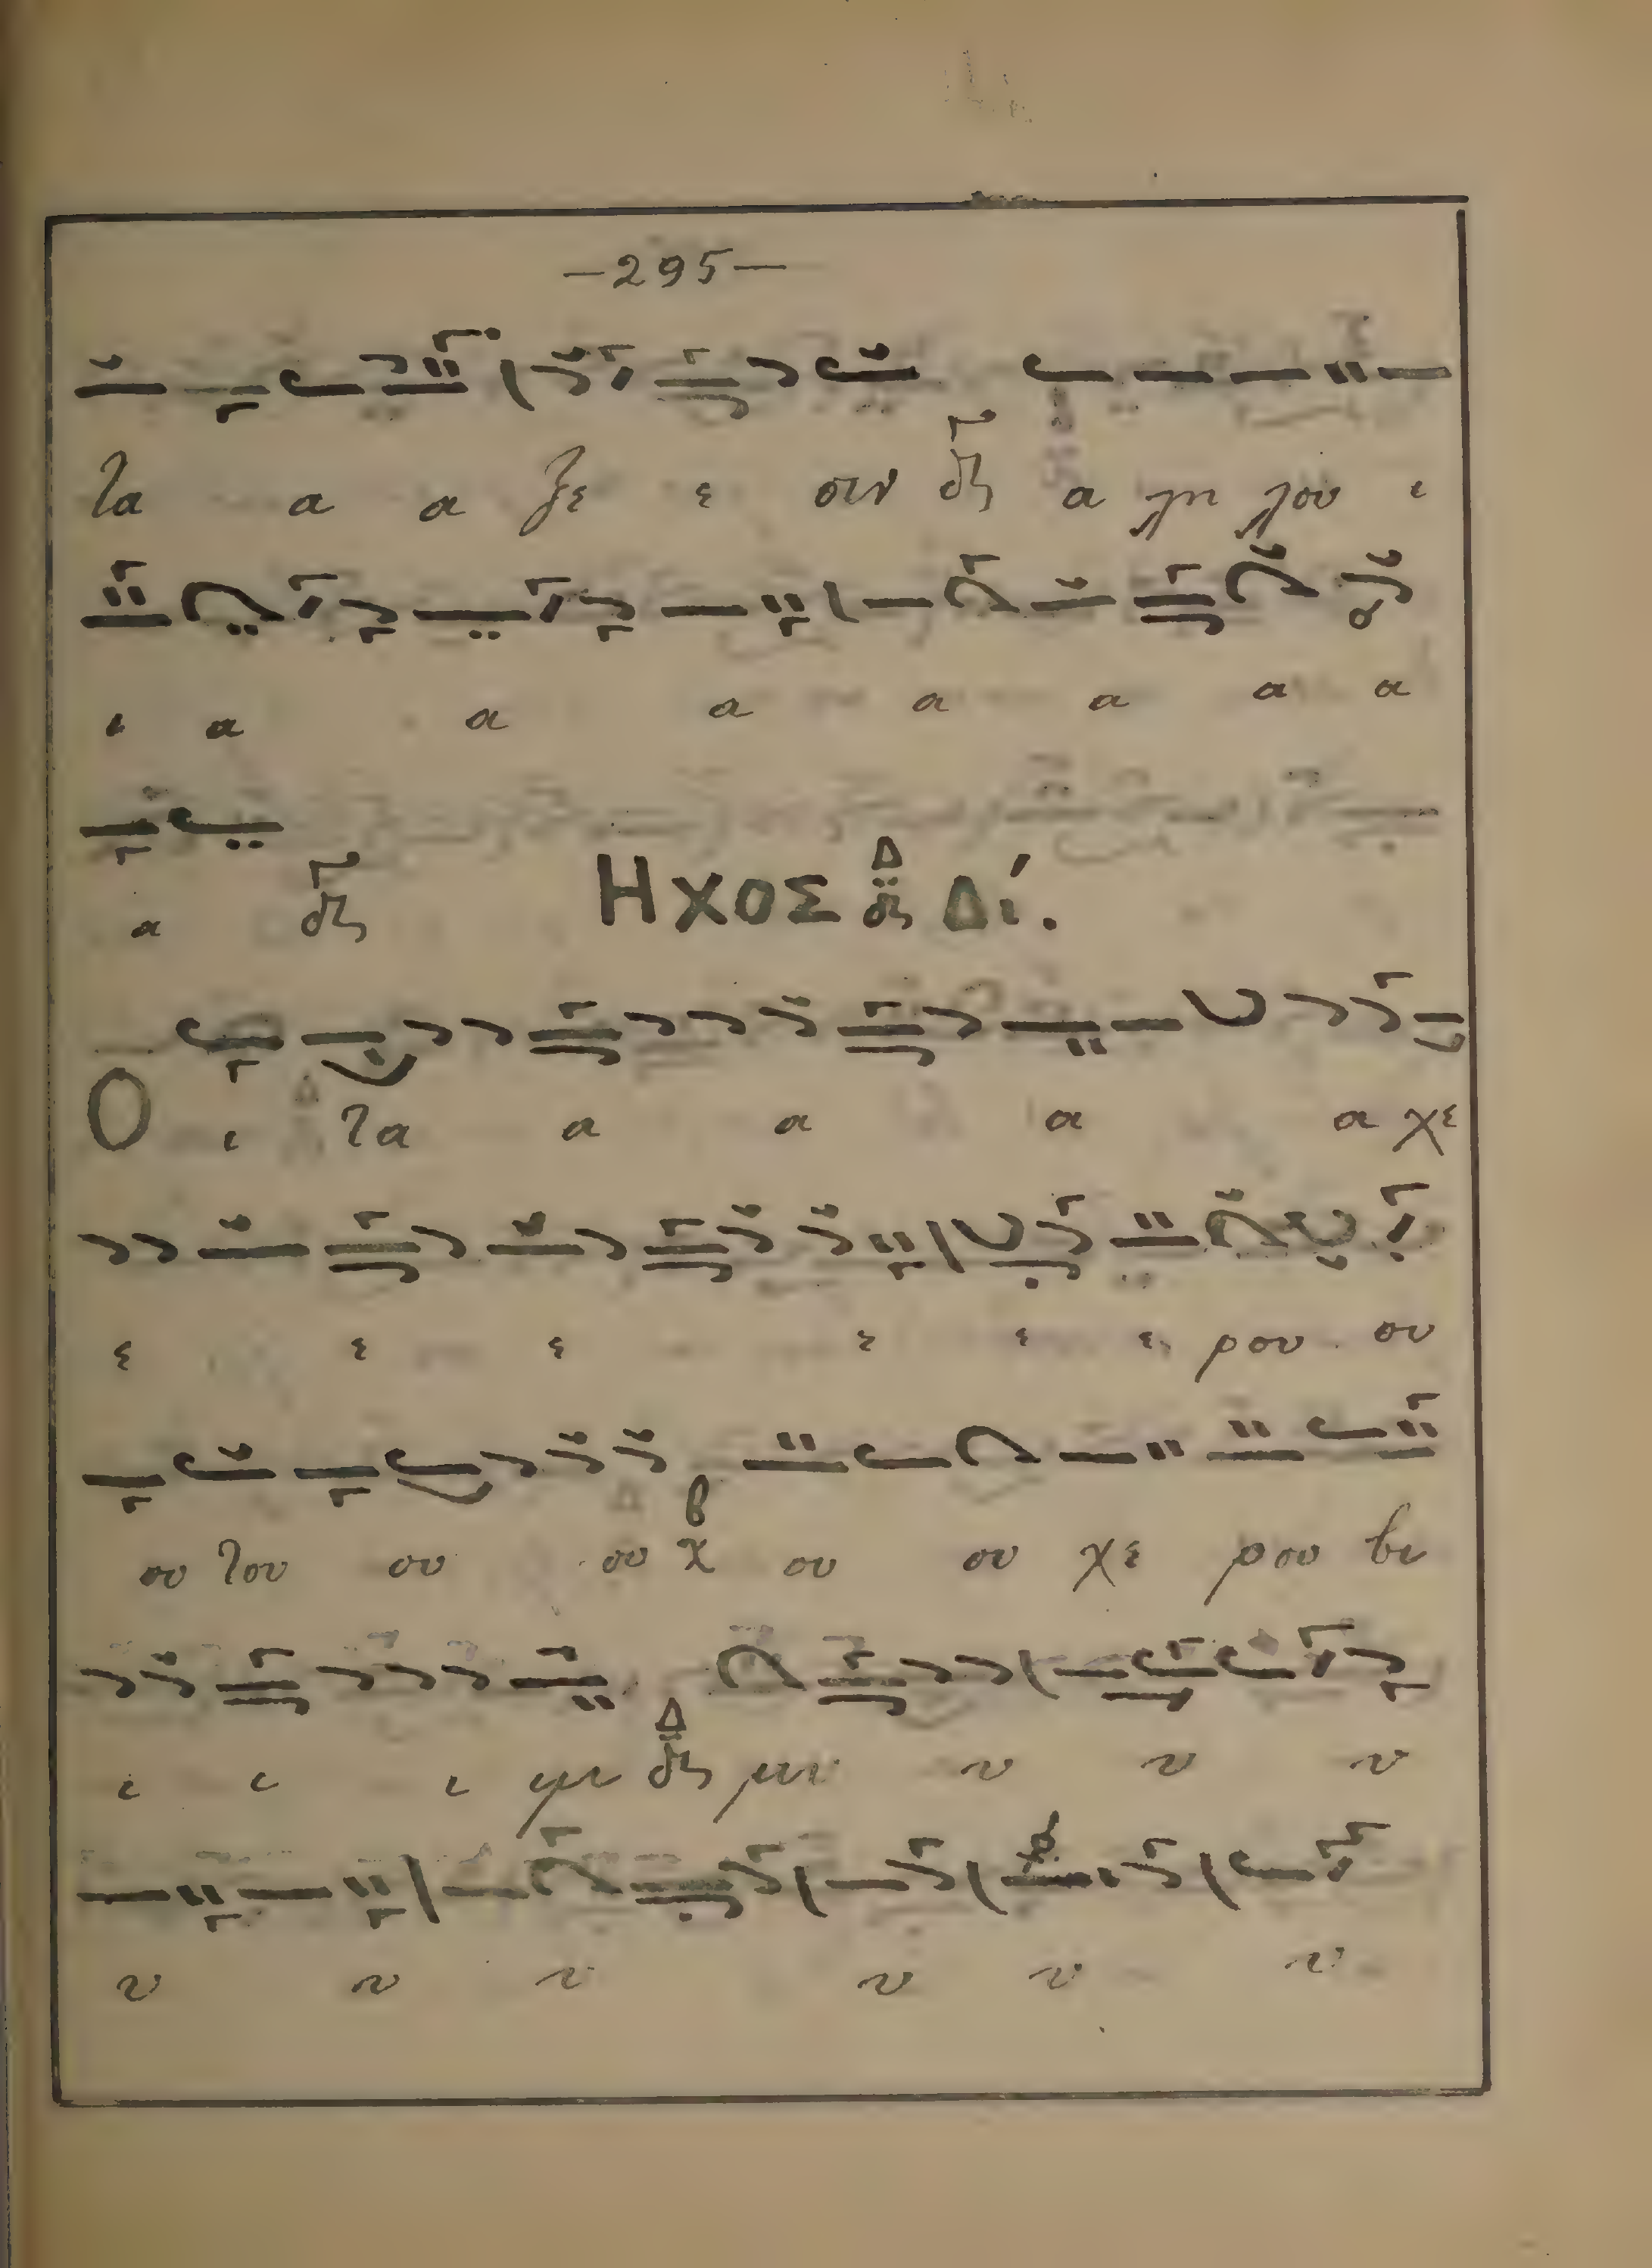 —295—
τα α α ξε ε σιν α λη λου ι
ι α α α α α α α
α ΗΧΟΣ Δι΄.
Ο ι τα α α α α χε
ε ε ε ε ε ε ρου ου
ου του ου ου ου ου χε ρου βι
ι ι ι μι μυ υ υ υ
υ υ υ υ υ υ